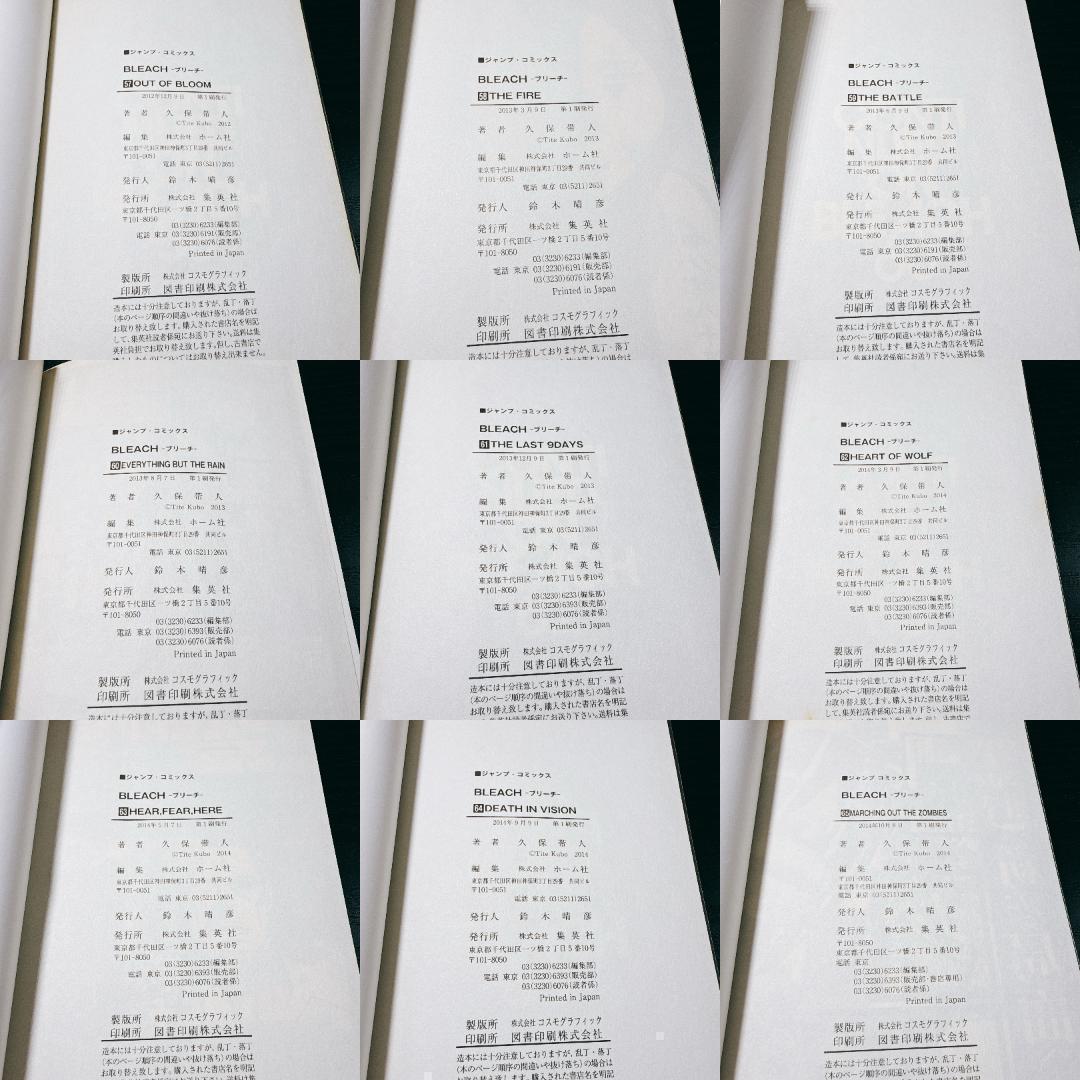 ■ジャンプ・コミックス
BLEACH -ブリーチ-
57 OUT OF BLOOM
2012年12月9日 第1刷発行
著者 久保帯人
©Tite Kubo 2012
編集 株式会社 ホーム社
東京都千代田区神田神保町3丁目29番 共同ビル
〒101-0051
電話 東京 03(5211)2651
発行人 鈴木晴彦
発行所 株式会社 集英社
東京都千代田区一ツ橋2丁目5番10号
〒101-8050
03(3230)6233(編集部)
電話 東京 03(3230)6191(販売部)
03(3230)6076(読者係)
Printed in Japan
製版所 株式会社 コスモグラフィック
印刷所 図書印刷株式会社
造本には十分注意しておりますが、乱丁・落丁
(本のページ順序の間違いや抜け落ち)の場合は
お取り替え致します。購入された書店名を明記
して、集英社読者係宛にお送り下さい。送料は集
英社負担でお取り替え致します。但し、古書店で
■ジャンプ・コミックス
BLEACH -ブリーチ-
58 THE FIRE
2013年3月9日 第1刷発行
著者 久保帯人
©Tite Kubo 2013
編集 株式会社 ホーム社
東京都千代田区神田神保町3丁目29番 共同ビル
〒101-0051
電話 東京 03(5211)2651
発行人 鈴木晴彦
発行所 株式会社 集英社
東京都千代田区一ツ橋2丁目5番10号
〒101-8050
03(3230)6233(編集部)
電話 東京 03(3230)6191(販売部)
03(3230)6076(読者係)
Printed in Japan
製版所 株式会社 コスモグラフィック
印刷所 図書印刷株式会社
造本には十分注意しておりますが、乱丁・落丁
■ジャンプ・コミックス
BLEACH -ブリーチ-
59 THE BATTLE
第1刷発行
著者 久保帯人
©Tite Kubo 2013
編集 株式会社 ホーム社
東京都千代田区神田神保町3丁目29番 共同ビル
〒101-0051
電話 東京 03(5211)2651
発行人 鈴木晴彦
発行所 株式会社 集英社
東京都千代田区一ツ橋2丁目5番10号
〒101-8050
03(3230)6233(編集部)
電話 東京 03(3230)6191(販売部)
03(3230)6076(読者係)
Printed in Japan
製版所 株式会社 コスモグラフィック
印刷所 図書印刷株式会社
造本には十分注意しておりますが、乱丁・落丁
(本のページ順序の間違いや抜け落ち)の場合は
お取り替え致します。購入された書店名を明記
して、集英社読者係宛にお送り下さい。送料は集
■ジャンプ・コミックス
BLEACH -ブリーチ-
60 EVERYTHING BUT THE RAIN
2013年8月7日 第1刷発行
著者 久保帯人
©Tite Kubo 2013
編集 株式会社 ホーム社
東京都千代田区神田神保町3丁目29番 共同ビル
〒101-0051
電話 東京 03(5211)2651
発行人 鈴木晴彦
発行所 株式会社 集英社
東京都千代田区一ツ橋2丁目5番10号
〒101-8050
03(3230)6233(編集部)
電話 東京 03(3230)6393(販売部)
03(3230)6076(読者係)
Printed in Japan
製版所 株式会社 コスモグラフィック
印刷所 図書印刷株式会社
造本には十分注意しておりますが、乱丁・落丁
■ジャンプ・コミックス
BLEACH -ブリーチ-
61 THE LAST 9DAYS
2013年12月9日 第1刷発行
著者 久保帯人
©Tite Kubo 2013
編集 株式会社 ホーム社
東京都千代田区神田神保町3丁目29番 共同ビル
〒101-0051
電話 東京 03(5211)2651
発行人 鈴木晴彦
発行所 株式会社 集英社
東京都千代田区一ツ橋2丁目5番10号
〒101-8050
03(3230)6233(編集部)
電話 東京 03(3230)6393(販売部)
03(3230)6076(読者係)
Printed in Japan
製版所 株式会社 コスモグラフィック
印刷所 図書印刷株式会社
造本には十分注意しておりますが、乱丁・落丁
(本のページ順序の間違いや抜け落ち)の場合は
お取り替え致します。購入された書店名を明記
■ジャンプ・コミックス
BLEACH -ブリーチ-
62 HEART OF WOLF
2014年3月9日 第1刷発行
著者 久保帯人
©Tite Kubo 2014
編集 株式会社 ホーム社
東京都千代田区神田神保町3丁目29番 共同ビル
〒101-0051
電話 東京 03(5211)2651
発行人 鈴木晴彦
発行所 株式会社 集英社
東京都千代田区一ツ橋2丁目5番10号
〒101-8050
03(3230)6233(編集部)
電話 東京 03(3230)6393(販売部)
03(3230)6076(読者係)
Printed in Japan
製版所 株式会社 コスモグラフィック
印刷所 図書印刷株式会社
造本には十分注意しておりますが、乱丁・落丁
(本のページ順序の間違いや抜け落ち)の場合は
お取り替え致します。購入された書店名を明記
して、集英社読者係宛にお送り下さい。送料は集
■ジャンプ・コミックス
BLEACH -ブリーチ-
63 HEAR,FEAR,HERE
2014年5月7日 第1刷発行
著者 久保帯人
©Tite Kubo 2014
編集 株式会社 ホーム社
東京都千代田区神田神保町3丁目29番 共同ビル
〒101-0051
電話 東京 03(5211)2651
発行人 鈴木晴彦
発行所 株式会社 集英社
東京都千代田区一ツ橋2丁目5番10号
〒101-8050
03(3230)6233(編集部)
電話 東京 03(3230)6393(販売部)
03(3230)6076(読者係)
Printed in Japan
製版所 株式会社 コスモグラフィック
印刷所 図書印刷株式会社
造本には十分注意しておりますが、乱丁・落丁
(本のページ順序の間違いや抜け落ち)の場合は
お取り替え致します。購入された書店名を明記
■ジャンプ・コミックス
BLEACH -ブリーチ-
64 DEATH IN VISION
2014年9月9日 第1刷発行
著者 久保帯人
©Tite Kubo 2014
編集 株式会社 ホーム社
東京都千代田区神田神保町3丁目29番 共同ビル
〒101-0051
電話 東京 03(5211)2651
発行人 鈴木晴彦
発行所 株式会社 集英社
東京都千代田区一ツ橋2丁目5番10号
〒101-8050
03(3230)6233(編集部)
電話 東京 03(3230)6393(販売部)
03(3230)6076(読者係)
Printed in Japan
製版所 株式会社 コスモグラフィック
印刷所 図書印刷株式会社
造本には十分注意しておりますが、乱丁・落丁
(本のページ順序の間違いや抜け落ち)の場合は
お取り替え致します。購入された書店名を明記
■ジャンプ・コミックス
BLEACH -ブリーチ-
65 MARCHING OUT THE ZOMBIES
第1刷発行
著者 久保帯人
©Tite Kubo 2014
編集 株式会社 ホーム社
〒101-0051
東京都千代田区神田神保町3丁目29番 共同ビル
電話 東京 03(5211)2651
発行人 鈴木晴彦
発行所 株式会社 集英社
東京都千代田区一ツ橋2丁目5番10号
〒101-8050
電話 東京
03(3230)6233(編集部)
03(3230)6393(販売部・書店専用)
03(3230)6076(読者係)
Printed in Japan
製版所 株式会社 コスモグラフィック
印刷所 図書印刷株式会社
造本には十分注意しておりますが、乱丁・落丁
(本のページ順序の間違いや抜け落ち)の場合は
お取り替え致します。購入された書店名を明記